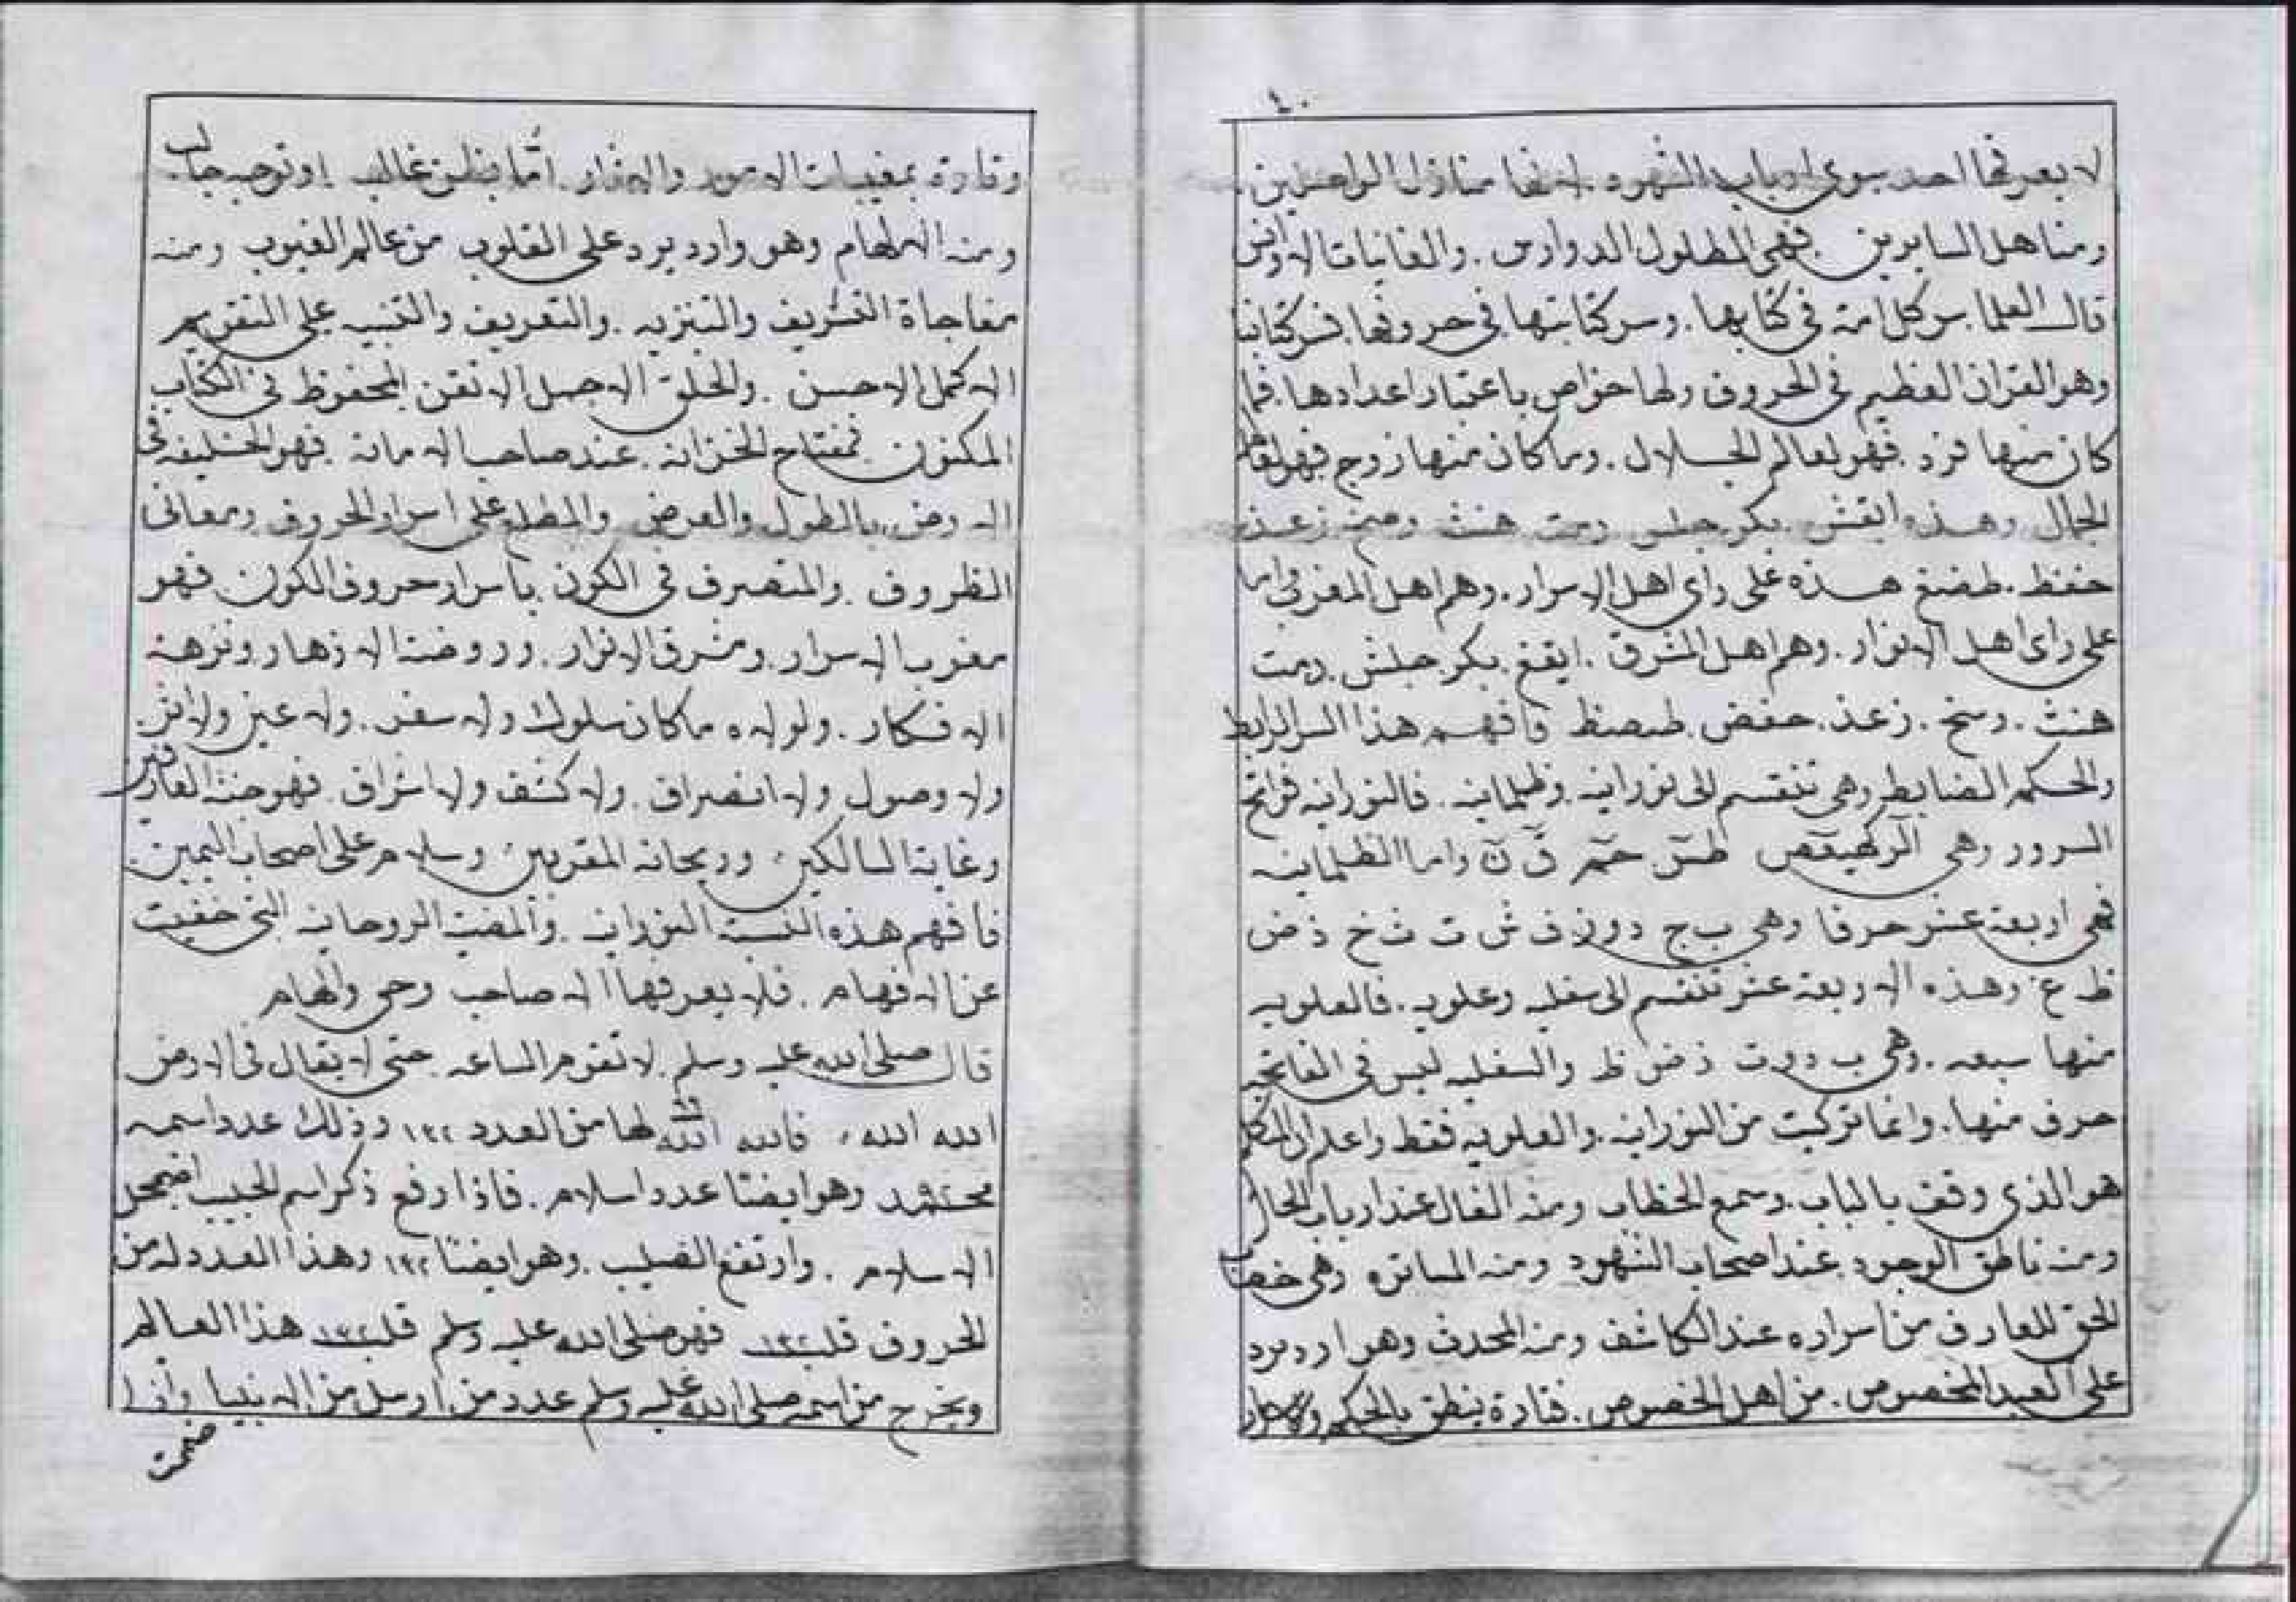 ٤٠
لا يعرفها احد سوى ارباب الشهود. لانها منازل الواصلين.
ومناهل السايرين. فهى الطلول الدوارس. والغانيات الاوانس
قال العلما سر كل امة فى كتابها. وسر كتابتها فى حروفها. فسر كتابنا
وهو القران العظيم فى الحروف ولها خواص باعتبار اعدادها. فما
كان منها فرد. فهو لعالم الجلال. وما كان منها زوج فهو لعالم
الجمال وهذه ايقش. بكر جلس دمت هنث وصخ زعذ
حفظ. طضغ هذه على راى اهل الاسرار. وهم اهل المغرب واما
على راى اهل الانوار. وهم اهل المشرق. ايقغ بكر جلش. دمت
هنث. وسخ. زعذ. حفض. طصظ فافهم هذا السر الرابط
والحكم الضابط وهى تنقسم الى نورانيه. وظلمانيه. فالنورانيه فواتح
السور وهى الر كهيعص طس حم ق ن واما الظلمانيه
فهى اربعة عشر حرفا وهى ب ج د و ز ف ش ت ث خ ذ ض
ظ غ. وهذه الاربعة عشر تنقسم الى سفليه وعلويه. فالعلويه
منها سبعه. وهى ب د و ت ذ ض ظ والسفليه ليس فى الفاتحه
حرف منها. وانما تركبت من النورانيه. والعلويه فقط واعلم ان المكلم
هو الذى وقف بالباب. وسمع الخطاب ومنه الفال عند ارباب الحال
ومنه ناطق الوجود عند اصحاب الشهود ومنه المسامره وهى خطاب
الحق للعارف من اسراره عند الكاشف ومنه المحدث وهو وارد يرد
على العبد المخصوص. من اهل الخصوص. فتارة ينطق بالحكم والاسرار
وتارة بمغيبات الامور والاخبار. اما بظن غالب او توجه جالب
ومنه الالهام وهو وارد يرد على القلوب من عالم الغيوب ومنه
مفاجاة التشريف والتنزيه. والتعريف والتنبيه على التقويم
الاكمل الاحسن. والخلق الاجمل الاتقن المحفوظ فى الكتاب
المكنون. فمفتاح الخزانه. عند صاحب الامانه. فهو الخليفه فى
الارض. بالطول والعرض والمطلع على اسرار الحروف ومعانى
الظروف. والمتصرف فى الكون. باسرار حروف الكون. فهو
مغرب الاسرار. ومشرق الانوار. وروضة الازهار ونزهة
الافكار. ولولاه ما كان سلوك ولا سفر. ولا عين ولا اثر.
ولا وصول ولا انصراف. ولا كشف ولا اشراق. فهو جنة العارفين
وغاية السالكين. وريحانة المقربين. وسلام على اصحاب اليمين.
فافهم هذه النسبة النورانيه. والمضية الروحانيه التى خفيت
عن الافهام. فلا يعرفها الا صاحب وحى والهام
قال صلى الله عليه وسلم لا تقوم الساعه حتى لا يقال فى الارض
الله الله. فالله الله لها من العدد ١٣٢ وذلك عدد اسمه
محمد وهو ايضا عدد اسلام. فاذا رفع ذكر اسم الحبيب اضمحل
الاسلام. وارتفع الصليب. وهو ايضا ١٣٢ وهذا العدد له من
الحروف قلب ١٣٢ فهو صلى الله عليه وسلم قلب ١٣٢ هذا العالم
ويخرج من اسمه صلى الله عليه وسلم عدد من ارسل من الانبيا وانزل